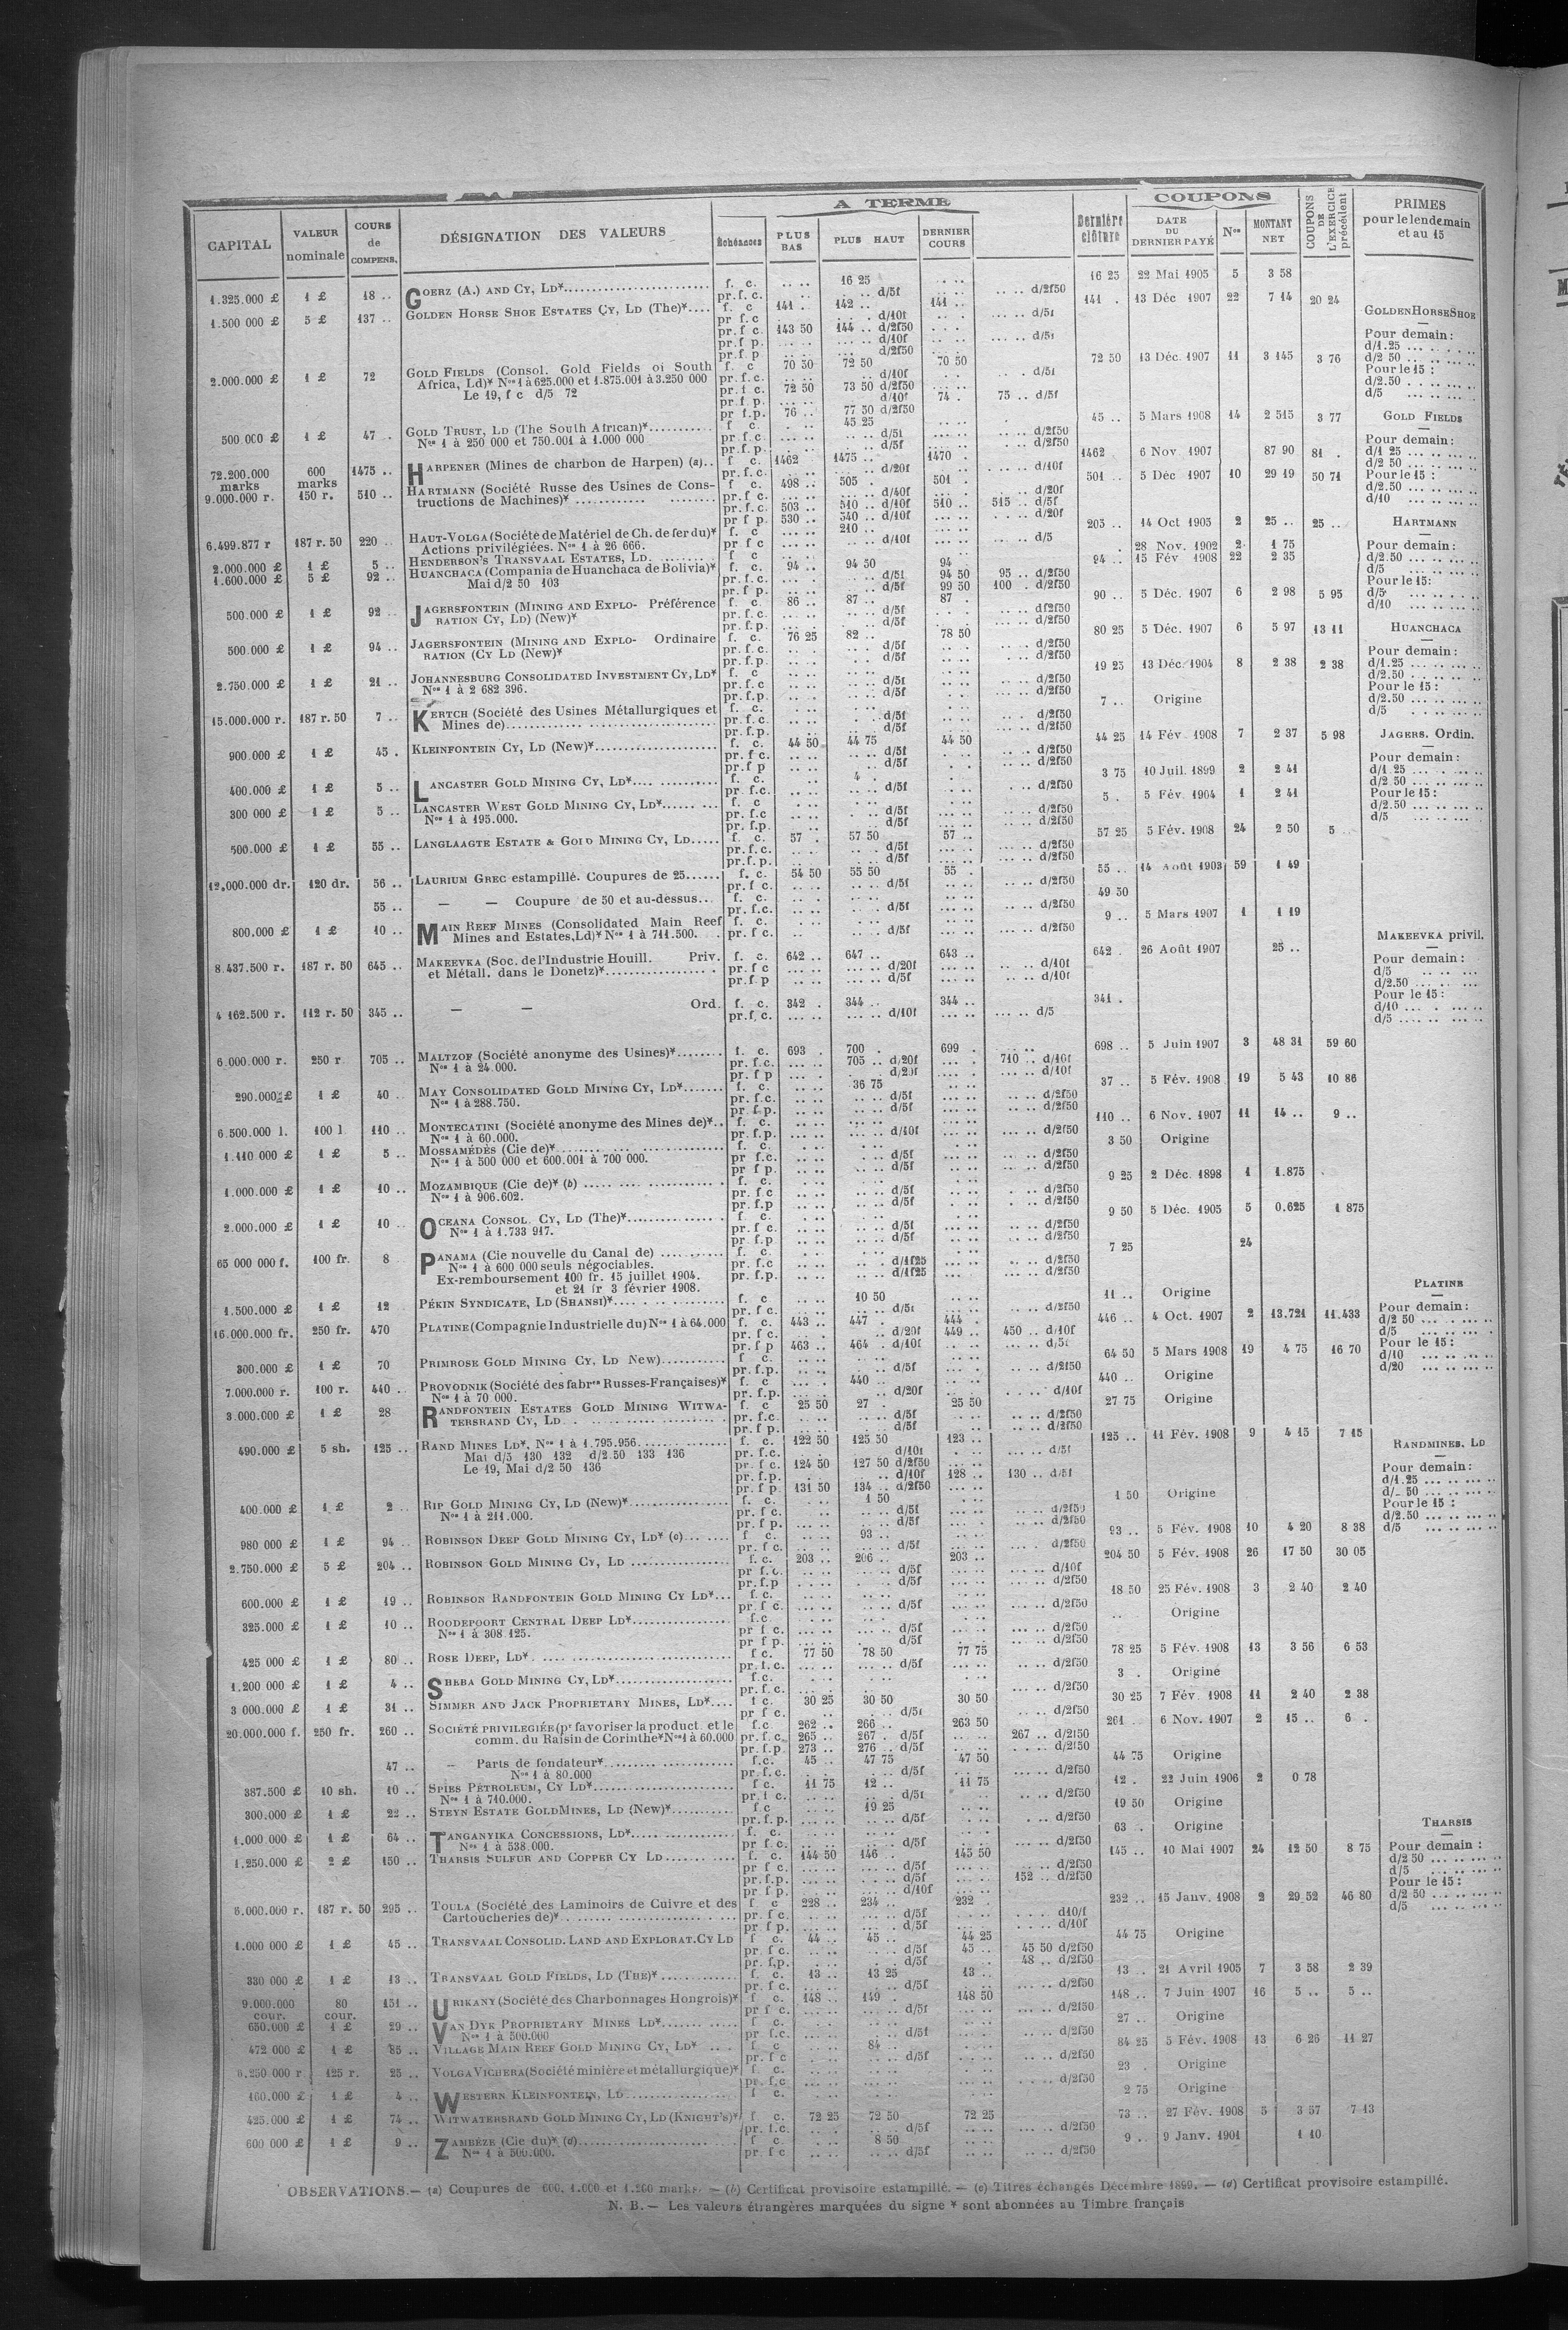 A TERME
COUPONS
CAPITAL | VALEUR nominale | COURS de COMPENS. | DÉSIGNATION DES VALEURS | Échéances | PLUS BAS | PLUS HAUT | DERNIER COURS | Dernière clôture | DATE DU DERNIER PAYÉ | Nos | MONTANT NET | COUPONS DE L'EXERCICE précédent | PRIMES pour le lendemain et au 15
1.325.000 £ | 1 £ | 18 .. | GOERZ (A.) AND CY, LD* | f. c. | .. .. | 16 25 | .. .. | 16 25 | 22 Mai 1905 | 5 | 3 58
pr. f. c. | d/5f | .. .. d/2f50
1.500 000 £ | 5 £ | 137 .. | GOLDEN HORSE SHOE ESTATES CY, LD (The)* | f. c | 141 . | 142 .. | 141 .. | 141 . | 13 Déc 1907 | 22 | 7 14 | 20 24
pr f. c | d/10f | d/5f
pr. f c. | 143 50 | 144 .. d/2f50
pr. f p. | d/10f | d/5f
pr. f p | d/2f50
2.000.000 £ | 1 £ | 72 | GOLD FIELDS (Consol. Gold Fields of South | f. c | 70 50 | 72 50 | 70 50 | 72 50 | 13 Déc. 1907 | 11 | 3 145 | 3 76
Africa, Ld)* Nos 1 à 625.000 et 1.875.001 à 3.250 000 | pr. f. c. | d/10f | d/5f
Le 19, f c d/5 72 | pr. f c. | 72 50 | 73 50 d/2f50
pr. f. p. | d/10f | 74 . | 75 .. d/5f
pr f. p. | 76 .. | 77 50 d/2f50
500 000 £ | 1 £ | 47 . | GOLD TRUST, LD (The South African)* | f c. | 45 25 | 45 .. | 5 Mars 1908 | 14 | 2 515 | 3 77
Nos 1 à 250 000 et 750.001 à 1.000 000 | pr. f c. | d/5f | d/2f50
pr. f. p. | d/5f | d/2f50
72.200.000 marks | 600 marks | 1475 .. | HARPENER (Mines de charbon de Harpen) (a) | f c. | 1462 | 1475 .. | 1470 . | 1462 | 6 Nov. 1907 | 87 90 | 81 .
pr. f. c. | d/20f | d/10f
9.000.000 r. | 150 r. | 510 .. | HARTMANN (Société Russe des Usines de Cons- | f c. | 498 .. | 505 . | 501 . | 501 . | 5 Déc 1907 | 10 | 29 19 | 50 71
tructions de Machines)* | pr. f c. | d/40f | d/20f
pr. f. c. | 503 .. | 510 .. d/10f | 510 .. | 515 .. d/5f
pr f p. | 530 .. | 540 .. d/10f | d/20f
6.499.877 r | 187 r. 50 | 220 .. | HAUT-VOLGA (Société de Matériel de Ch. de fer du)* | f. c | 210 .. | 205 .. | 14 Oct 1905 | 2 | 25 .. | 25 ..
Actions privilégiées. Nos 1 à 26 666. | pr f c | d/10f | d/5
2.000.000 £ | 1 £ | 5 .. | HENDERSON'S TRANSVAAL ESTATES, LD | f c | 28 Nov. 1902 | 2 | 1 75
1.600.000 £ | 5 £ | 92 .. | HUANCHACA (Compania de Huanchaca de Bolivia)* | f. c. | 94 .. | 94 50 | 94 | 94 .. | 15 Fév 1908 | 22 | 2 35
Mai d/2 50 103 | pr. f. c. | d/5f | 94 50 | 95 .. d/2f50
pr. f p. | d/5f | 99 50 | 100 . d/2f50
500.000 £ | 1 £ | 92 .. | JAGERSFONTEIN (MINING AND EXPLO- Préférence | f. c. | 86 .. | 87 .. | 87 . | 90 .. | 5 Déc. 1907 | 6 | 2 98 | 5 95
RATION CY, LD) (New)* | pr. f. c. | d/5f | df2f50
pr. f. p. | d/5f | d/2f50
500.000 £ | 1 £ | 94 .. | JAGERSFONTEIN (MINING AND EXPLO- Ordinaire | f. c. | 76 25 | 82 .. | 78 50 | 80 25 | 5 Déc. 1907 | 6 | 5 97 | 13 11
RATION (CY LD (New)* | pr. f. c. | d/5f | d/2f50
pr. f. p. | d/5f | d/2f50
2.750.000 £ | 1 £ | 21 .. | JOHANNESBURG CONSOLIDATED INVESTMENT CY, LD* | f. c | 19 25 | 13 Déc. 1904 | 8 | 2 38 | 2 38
Nos 1 à 2 682 396. | pr. f. c | d/5f | d/2f50
pr. f. p. | d/5f | d/2f50
15.000.000 r. | 187 r. 50 | 7 .. | KERTCH (Société des Usines Métallurgiques et | f. c. | 7 .. | Origine
Mines de) | pr. f. c. | d/5f | d/2f50
pr. f. p. | d/5f | d/2f50
900.000 £ | 1 £ | 45 . | KLEINFONTEIN CY, LD (New)* | f. c. | 44 50 | 44 75 | 44 50 | 44 25 | 14 Fév 1908 | 7 | 2 37 | 5 98
pr. f c. | d/5f | d/2f50
pr. f p | d/5f | d/2f50
400.000 £ | 1 £ | 5 .. | LANCASTER GOLD MINING CY, LD* | f. c. | 4 . | 3 75 | 10 Juil. 1899 | 2 | 2 41
pr. f. c. | d/5f | d/2f50
300 000 £ | 1 £ | 5 .. | LANCASTER WEST GOLD MINING CY, LD* | f. c | 5 . | 5 Fév 1904 | 1 | 2 41
Nos 1 à 195.000. | pr. f. c | d/5f | d/2f50
pr. f. p. | d/5f | d/2f50
500.000 £ | 1 £ | 55 .. | LANGLAAGTE ESTATE & GOLD MINING CY, LD | f. c. | 57 . | 57 50 | 57 .. | 57 25 | 5 Fév. 1908 | 24 | 2 50 | 5 .
pr. f. c. | d/5f | d/2f50
pr. f. p. | d/5f | d/2f50
12.000.000 dr. | 120 dr. | 56 .. | LAURIUM GREC estampillé. Coupures de 25 | f. c. | 54 50 | 55 50 | 55 . | 55 .. | 14 Août 1903 | 59 | 1 49
pr. f c. | d/5f | d/2f50
55 .. | — — Coupure de 50 et au-dessus | f. c. | 49 50
pr. f. c. | d/5f | d/2f50
800.000 £ | 1 £ | 10 .. | MAIN REEF MINES (Consolidated Main Reef | f. c. | 9 .. | 5 Mars 1907 | 1 | 1 19
Mines and Estates, Ld)* Nos 1 à 711.500. | pr. f c. | d/5f | d/2f50
8.437.500 r. | 187 r. 50 | 645 .. | MAKEEVKA (Soc. de l'Industrie Houill. Priv. | f. c. | 642 .. | 647 .. | 643 .. | 642 . | 26 Août 1907 | 25 ..
et Métall. dans le Donetz)* | pr. f c | d/20f | d/10f
pr. f. p | d/5f | d/10f
4 162.500 r. | 112 r. 50 | 345 .. | — — Ord. | f. c. | 342 . | 344 .. | 344 .. | 341 .
pr. f. c. | d/10f | d/5
6.000.000 r. | 250 r | 705 .. | MALTZOF (Société anonyme des Usines)* | f. c. | 693 . | 700 . | 699 . | 698 .. | 5 Juin 1907 | 3 | 48 31 | 59 60
Nos 1 à 24.000. | pr. f. c. | 705 .. d/20f | 710 .. d/10f
pr. f p | d/20f | d/10f
290.000 £ | 1 £ | 40 .. | MAY CONSOLIDATED GOLD MINING CY, LD* | f. c. | 36 75 | 37 .. | 5 Fév. 1908 | 19 | 5 43 | 10 86
Nos 1 à 288.750. | pr. f. c. | d/5f | d/2f50
pr. f. p. | d/5f | d/2f50
6.500.000 l. | 100 l | 110 .. | MONTECATINI (Société anonyme des Mines de)* | f. c. | 110 .. | 6 Nov. 1907 | 11 | 14 .. | 9 ..
Nos 1 à 60.000. | pr. f. p. | d/10f | d/2f50
1.110 000 £ | 1 £ | 5 .. | MOSSAMÉDÈS (Cie de)* | f. c. | 3 50 | Origine
Nos 1 à 500 000 et 600.001 à 700 000. | pr f. c. | d/5f | d/2f50
pr f p. | d/5f | d/2f50
1.000.000 £ | 1 £ | 10 .. | MOZAMBIQUE (Cie de)* (b) | f. c. | 9 25 | 2 Déc. 1898 | 1 | 1.875
Nos 1 à 906.602. | pr. f c | d/5f | d/2f50
pr. f. p | d/5f | d/2f50
2.000.000 £ | 1 £ | 10 .. | OCEANA CONSOL. CY, LD (The)* | f c. | 9 50 | 5 Déc. 1905 | 5 | 0.625 | 1 875
Nos 1 à 1.733 917. | pr. f c. | d/5f | d/2f50
pr. f. p | d/5f | d/2f50
65 000 000 f. | 100 fr. | 8 | PANAMA (Cie nouvelle du Canal de) | f. c. | 7 25 | 24
Nos 1 à 600 000 seuls négociables. | pr. f. c | d/1f25 | d/2f50
Ex-remboursement 100 fr. 15 juillet 1904. | pr. f. p. | d/1f25 | d/2f50
et 21 fr 3 février 1908.
1.500.000 £ | 1 £ | 12 | PÉKIN SYNDICATE, LD (SHANSI)* | f. c | 10 50 | 11 .. | Origine
pr. f c. | d/5f | d/2f50
16.000.000 fr. | 250 fr. | 470 | PLATINE (Compagnie Industrielle du) Nos 1 à 64.000 | f. c. | 443 .. | 447 . | 444 . | 446 .. | 4 Oct. 1907 | 2 | 13.721 | 11.433
pr. f c. | d/20f | 449 .. | 450 .. d/10f
pr. f p | 463 .. | 464 . d/10f | d/5f
300.000 £ | 1 £ | 70 | PRIMROSE GOLD MINING CY, LD New) | f c. | 64 50 | 5 Mars 1908 | 19 | 4 75 | 16 70
pr. f. p. | d/5f | d/2f50
7.000.000 r. | 100 r. | 440 .. | PROVODNIK (Société des fabres Russes-Françaises)* | f. c | 440 .. | 440 .. | Origine
Nos 1 à 70 000. | pr. f. p. | d/20f | d/10f
3.000.000 £ | 1 £ | 28 | RANDFONTEIN ESTATES GOLD MINING WITWA- | f. c | 25 50 | 27 . | 25 50 | 27 75 | Origine
TERSRAND CY, LD | pr. f. c. | d/5f | d/2f50
pr. f p. | d/5f | d/2f50
490.000 £ | 5 sh. | 125 .. | RAND MINES LD*, Nos 1 à 1.795.956 | f. c. | 122 50 | 125 50 | 123 .. | 125 .. | 11 Fév. 1908 | 9 | 4 15 | 7 15
Mai d/5 130 132 d/2.50 133 136 | pr. f. c. | d/10f | d/5f
Le 19, Mai d/2 50 136 | pr. f c. | 124 50 | 127 50 d/2f50
pr. f. p. | d/10f | 128 .. | 130 .. d/5f
pr. f p. | 131 50 | 134 .. d/2f50
400.000 £ | 1 £ | 2 .. | RIP GOLD MINING CY, LD (New)* | f. c. | 1 50 | 1 50 | Origine
Nos 1 à 211.000. | pr. f c. | d/5f | d/2f50
pr. f p. | d/5f | d/2f50
980 000 £ | 1 £ | 94 .. | ROBINSON DEEP GOLD MINING CY, LD* (c) | f c | 93 .. | 93 .. | 5 Fév. 1908 | 10 | 4 20 | 8 38
pr. f c. | d/5f | d/2f50
2.750.000 £ | 5 £ | 204 .. | ROBINSON GOLD MINING CY, LD | f. c. | 203 .. | 206 .. | 203 .. | 204 50 | 5 Fév. 1908 | 26 | 17 50 | 30 05
pr f. c. | d/5f | d/10f
pr. f. p | d/5f | d/2f50
600.000 £ | 1 £ | 19 .. | ROBINSON RANDFONTEIN GOLD MINING CY LD* | f. c. | 18 50 | 25 Fév. 1908 | 3 | 2 40 | 2 40
pr. f c. | d/5f | d/2f50
325.000 £ | 1 £ | 10 .. | ROODEPOORT CENTRAL DEEP LD* | f. c | .. | Origine
Nos 1 à 308 125. | pr f c. | d/5f | d/2f50
pr f p. | d/5f | d/2f50
425 000 £ | 1 £ | 80 .. | ROSE DEEP, LD* | f c. | 77 50 | 78 50 | 77 75 | 78 25 | 5 Fév. 1908 | 13 | 3 56 | 6 53
pr. f. c. | d/5f | d/2f50
1.200 000 £ | 1 £ | 4 .. | SHEBA GOLD MINING CY, LD* | f. c. | 3 . | Origine
pr. f. c. | d/2f50
3 000.000 £ | 1 £ | 31 .. | SIMMER AND JACK PROPRIETARY MINES, LD* | f c. | 30 25 | 30 50 | 30 50 | 30 25 | 7 Fév. 1908 | 11 | 2 40 | 2 38
pr f c. | d/5f | d/2f50
20.000.000 f. | 250 fr. | 260 .. | SOCIÉTÉ PRIVILEGIÉE (pr favoriser la product. et le | f. c | 262 .. | 266 .. | 263 50 | 261 . | 6 Nov. 1907 | 2 | 15 .. | 6 .
comm. du Raisin de Corinthe* Nos 1 à 60.000 | pr. f. c. | 265 .. | 267 . d/5f | 267 .. d/2f50
pr. f. p | 273 .. | 276 .. d/5f | d/2f50
47 .. | — Parts de fondateur* | f. c. | 45 .. | 47 75 | 47 50 | 44 75 | Origine
Nos 1 à 80.000 | pr. f. c. | d/5f | d/2f50
387.500 £ | 10 sh. | 10 .. | SPIES PÉTROLEUM, CY LD* | f c. | 11 75 | 12 .. | 11 75 | 12 . | 22 Juin 1906 | 2 | 0 78
Nos 1 à 740.000. | pr. f c. | d/5f | d/2f50
300.000 £ | 1 £ | 22 .. | STEYN ESTATE GOLD MINES, LD (New)* | f. c | 19 25 | 19 50 | Origine
pr. f. p. | d/5f | d/2f50
1.000.000 £ | 1 £ | 64 .. | TANGANYIKA CONCESSIONS, LD* | f. c. | 63 . | Origine
Nos 1 à 538.000. | pr f. c. | d/5f | d/2f50
1.250.000 £ | 2 £ | 150 .. | THARSIS SULFUR AND COPPER CY LD | f. c. | 144 50 | 146 .. | 145 50 | 145 .. | 10 Mai 1907 | 24 | 12 50 | 8 75
pr f c. | d/5f | d/2f50
pr. f. p. | d/5f | 152 .. d/2f50
pr f p. | d/10f
6.000.000 r. | 187 r. 50 | 295 .. | TOULA (Société des Laminoirs de Cuivre et des | f. c | 228 .. | 234 .. | 232 . | 232 .. | 15 Janv. 1908 | 2 | 29 52 | 46 80
Cartoucheries de)* | pr. f c. | d/5f | d10/f
pr f p. | d/5f | d/10f
1.000 000 £ | 1 £ | 45 .. | TRANSVAAL CONSOLID. LAND AND EXPLORAT. CY LD | f c. | 44 .. | 45 .. | 44 25 | 44 75 | Origine
pr f c. | d/5f | 45 .. | 45 50 d/2f50
pr. f. p. | d/5f | 48 .. d/2f50
330 000 £ | 1 £ | 13 .. | TRANSVAAL GOLD FIELDS, LD (THE)* | f. c. | 13 .. | 13 25 | 13 .. | 13 .. | 21 Avril 1905 | 7 | 3 58 | 2 39
pr. f c. | d/5f | d/2f50
9.000.000 cour. | 80 cour. | 151 .. | URIKANY (Société des Charbonnages Hongrois)* | f c. | 148 .. | 149 . | 148 50 | 148 .. | 7 Juin 1907 | 16 | 5 .. | 5 ..
pr f c. | d/5f | d/2f50
650.000 £ | 1 £ | 29 .. | VAN DYK PROPRIETARY MINES LD* | f c. | 27 .. | Origine
Nos 1 à 500.000 | pr. f. c. | d/5f | d/2f50
472 000 £ | 1 £ | 85 .. | VILLAGE MAIN REEF GOLD MINING CY, LD* | f c | 84 .. | 84 25 | 5 Fév. 1908 | 13 | 6 26 | 11 27
pr. f c | d/5f | d/2f50
6.250 000 r | 125 r. | 25 .. | VOLGA VICHERA (Société minière et métallurgique)* | f. c. | 23 . | Origine
pr. f. c | d/2f50
160.000 £ | 1 £ | 4 .. | WESTERN KLEINFONTEIN, LD | f c. | 2 75 | Origine
425.000 £ | 1 £ | 74 .. | WITWATERSRAND GOLD MINING CY, LD (KNIGHT'S)* | f c. | 72 25 | 72 50 | 72 25 | 73 .. | 27 Fév. 1908 | 5 | 3 57 | 7 13
pr. f. c. | d/5f | d/2f50
600 000 £ | 1 £ | 9 .. | ZAMBÈZE (Cie du)* (d) | f c. | 8 50 | 9 .. | 9 Janv. 1901 | 1 10
Nos 1 à 500.000. | pr. f c | d/5f | d/2f50
GOLDEN HORSE SHOE
Pour demain :
d/1.25
d/2 50
Pour le 15 :
d/2.50
d/5
GOLD FIELDS
Pour demain :
d/1 25
d/2 50
Pour le 15 :
d/2.50
d/10
HARTMANN
Pour demain :
d/2.50
d/5
Pour le 15 :
d/5
d/10
HUANCHACA
Pour demain :
d/1.25
d/2.50
Pour le 15 :
d/2.50
d/5
JAGERS. Ordin.
Pour demain :
d/1.25
d/2 50
Pour le 15 :
d/2.50
d/5
MAKEEVKA privil.
Pour demain :
d/5
d/2.50
Pour le 15 :
d/10
d/5
PLATINE
Pour demain :
d/2 50
d/5
Pour le 15 :
d/10
d/20
RANDMINES, LD
Pour demain :
d/1.25
d/_ 50
Pour le 15 :
d/2.50
d/5
THARSIS
Pour demain :
d/2 50
d/5
Pour le 15 :
d/2 50
d/5
OBSERVATIONS.— (a) Coupures de 600, 1.000 et 1.200 marks. — (b) Certificat provisoire estampillé. — (c) Titres échangés Décembre 1899. — (d) Certificat provisoire estampillé.
N. B. — Les valeurs étrangères marquées du signe * sont abonnées au Timbre français